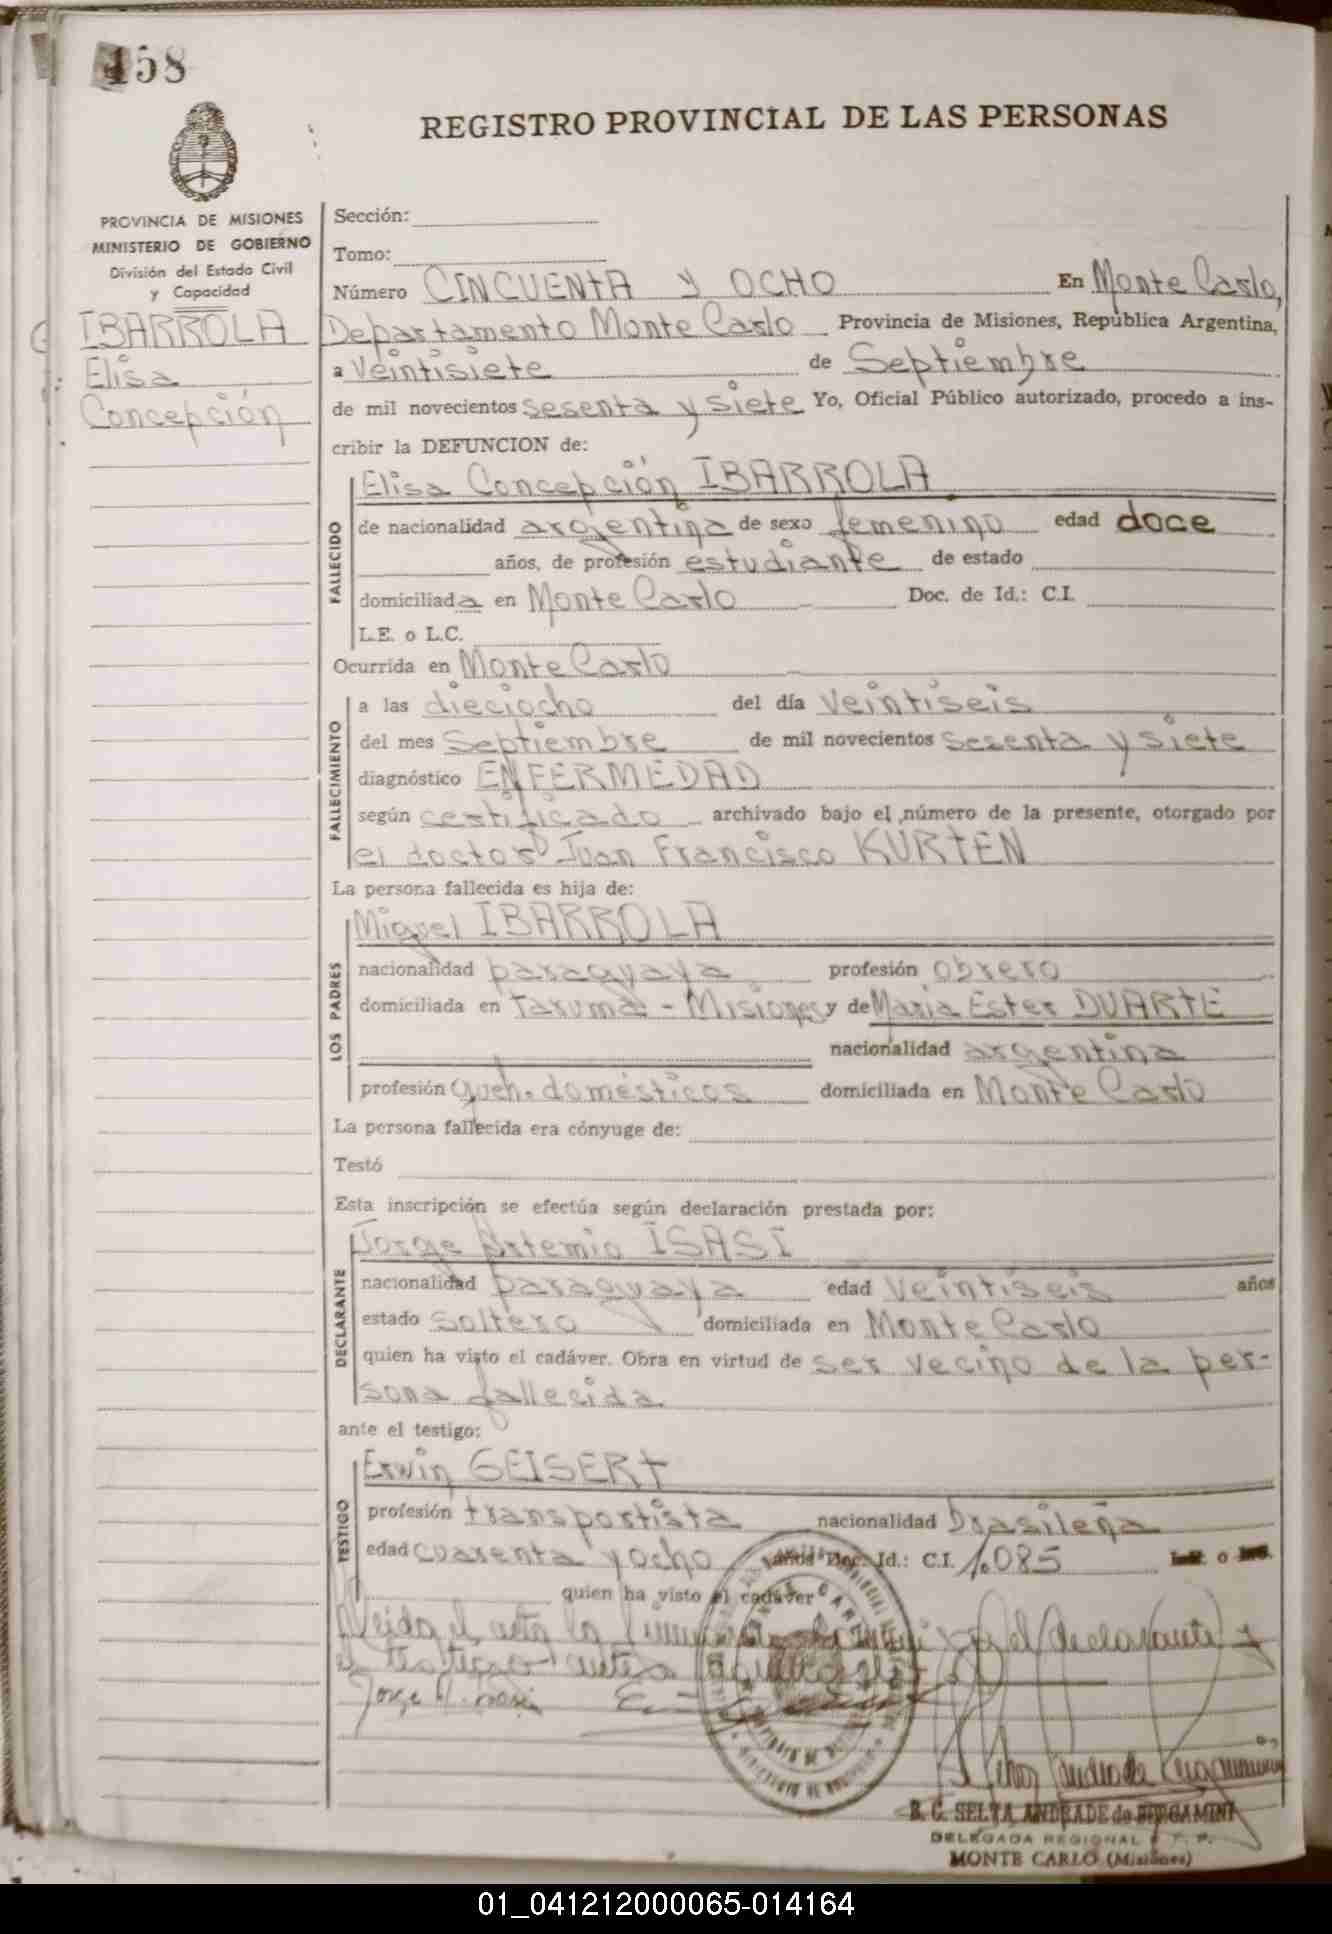 158
REGISTRO PROVINCIAL DE LAS PERSONAS
PROVINCIA DE MISIONES
MINISTERIO DE GOBIERNO
División del Estado Civil
y Capacidad
IBARROLA
Elisa
Concepción
Sección:
Tomo:
Número CINCUENTA y OCHO En Monte Carlo,
Departamento Monte Carlo Provincia de Misiones, República Argentina,
a Veintisiete de Septiembre
de mil novecientos sesenta y siete Yo, Oficial Público autorizado, procedo a ins-
cribir la DEFUNCION de:
FALLECIDO
Elisa Concepción IBARROLA
de nacionalidad argentina de sexo femenino edad doce
años, de profesión estudiante de estado
domiciliada en Monte Carlo Doc. de Id.: C.I.
L.E. o L.C.
Ocurrida en Monte Carlo
FALLECIMIENTO
a las dieciocho del día veintiseis
del mes Septiembre de mil novecientos sesenta y siete
diagnóstico ENFERMEDAD
según certificado archivado bajo el número de la presente, otorgado por
el doctor Juan Francisco KURTEN
La persona fallecida es hija de:
LOS PADRES
Miguel IBARROLA
nacionalidad paraguaya profesión obrero
domiciliada en Tarumá - Misiones y de María Ester DUARTE
nacionalidad argentina
profesión queh. domésticos domiciliada en Monte Carlo
La persona fallecida era cónyuge de:
Testó
Esta inscripción se efectúa según declaración prestada por:
DECLARANTE
Jorge Artemio ISASI
nacionalidad paraguaya edad veintiseis años
estado soltero domiciliada en Monte Carlo
quien ha visto el cadáver. Obra en virtud de ser vecino de la per-
sona fallecida
ante el testigo:
TESTIGO
Erwin GEISERT
profesión transportista nacionalidad brasileña
edad cuarenta y ocho años Doc. Id.: C.I. 1.085 L.E. o L.C.
quien ha visto el cadáver
Leida el acta la firman el declarante y
el testigo
Jorge A. Isasi
B. C. SELVA ANDRADE de BERGAMINI
DELEGADA REGIONAL
MONTE CARLO (Misiones)
01_041212000065-014164